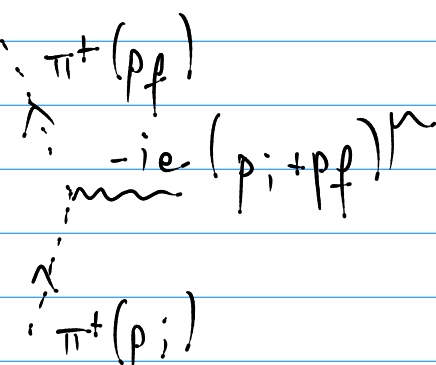 π⁺(pf)
-ie(pi+pf)^μ
π⁺(pi)